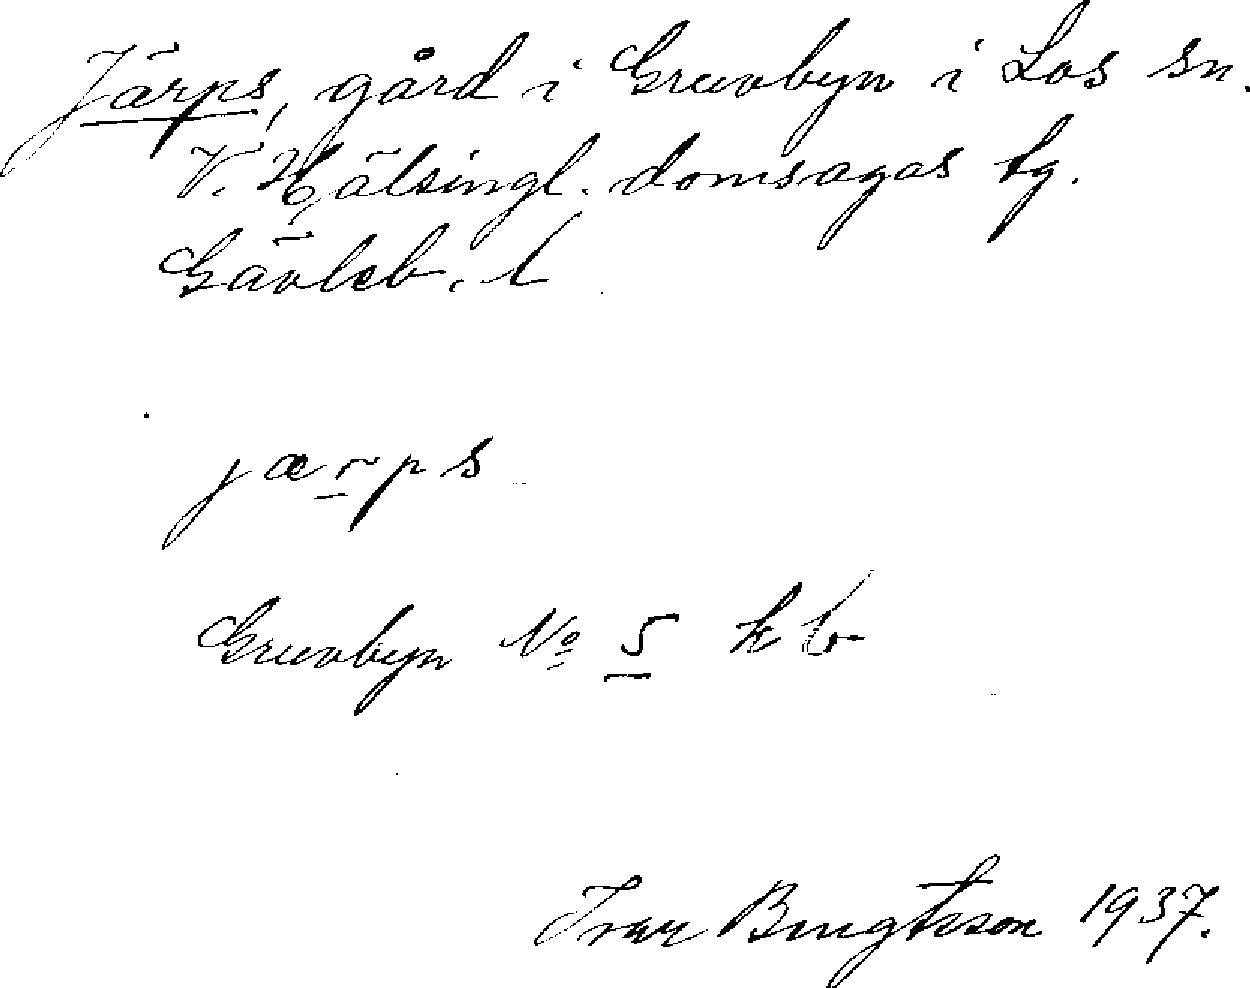 Järps, gård i Gruvbyn i Los sn.
V. Hälsingl. domsagas tg.
Gävleb. l
jærps
Gruvbyn No 5 kb
Ivar Bengtsson 1937.